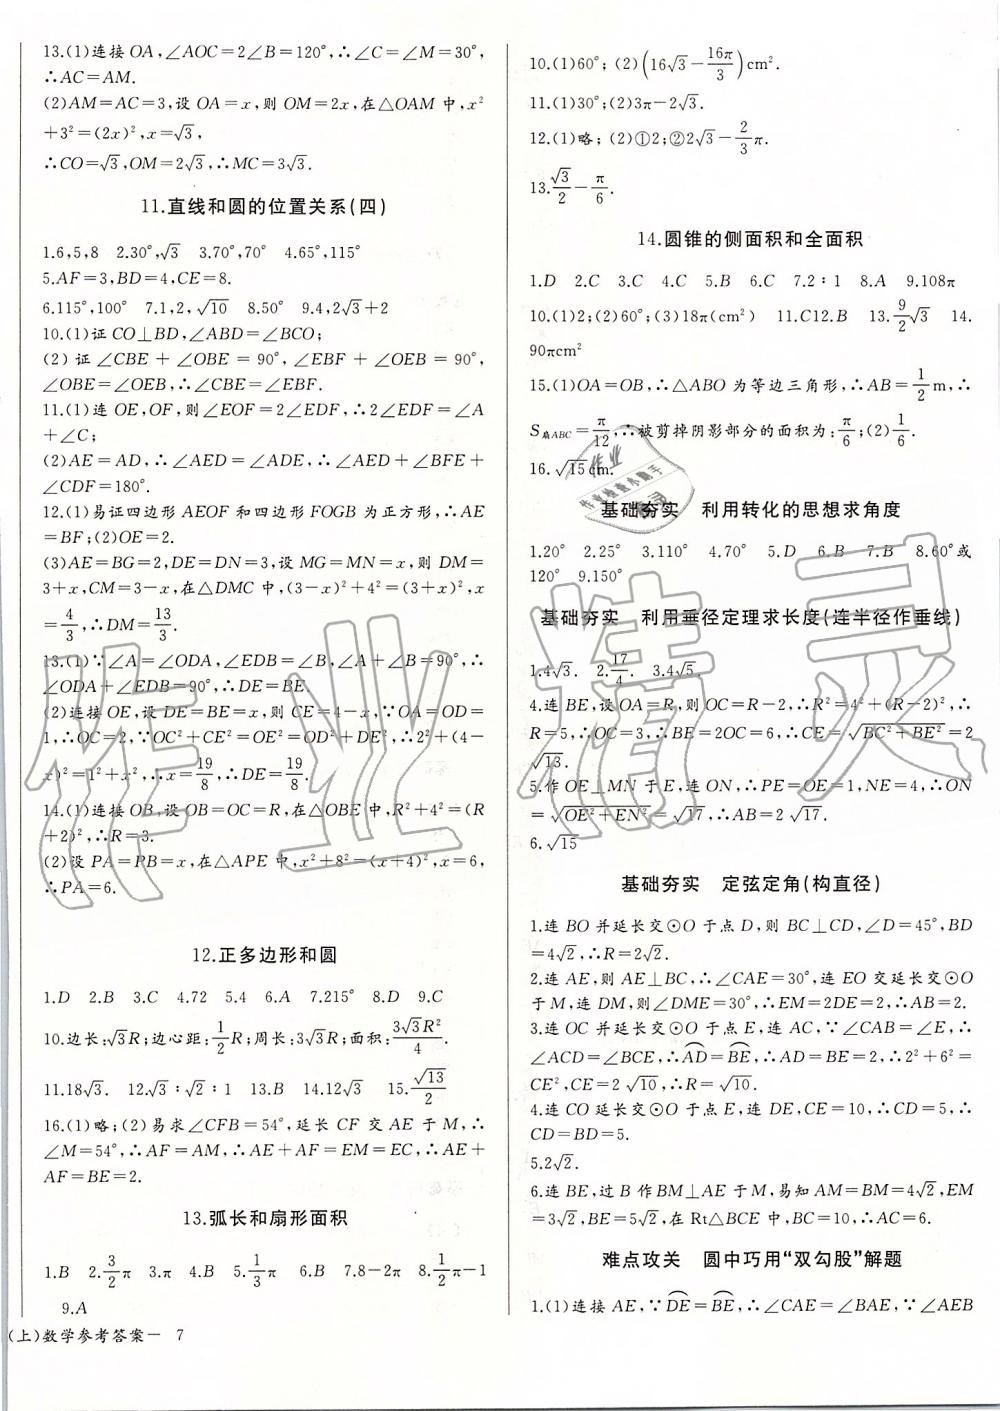 13.(1)连接 OA,∠AOC=2∠B=120°,∴∠C=∠M=30°,
∴AC=AM.
(2)AM=AC=3,设 OA=x,则 OM=2x,在△OAM 中,x²
+3²=(2x)²,x=√3,
∴CO=√3,OM=2√3,∴MC=3√3.
11.直线和圆的位置关系(四)
1.6,5,8 2.30°,√3 3.70°,70° 4.65°,115°
5.AF=3,BD=4,CE=8.
6.115°,100° 7.1,2,√10 8.50° 9.4,2√3+2
10.(1)证 CO⊥BD,∠ABD=∠BCO;
(2) 证 ∠CBE + ∠OBE = 90°, ∠EBF + ∠OEB = 90°,
∠OBE=∠OEB,∴∠CBE=∠EBF.
11.(1)连 OE,OF,则∠EOF=2∠EDF,∴2∠EDF=∠A
+∠C;
(2)AE=AD,∴∠AED=∠ADE,∴∠AED+∠BFE+
∠CDF=180°.
12.(1)易证四边形 AEOF 和四边形 FOGB 为正方形,∴AE
=BF;(2)OE=2.
(3)AE=BG=2,DE=DN=3,设 MG=MN=x,则 DM=
3+x,CM=3-x,在△DMC 中,(3-x)²+4²=(3+x)²,x
=4/3,∴DM=13/3.
13.(1)∵∠A=∠ODA,∠EDB=∠B,∠A+∠B=90°,∴
∠ODA+∠EDB=90°,∴DE=BE.
(2)连接 OE,设 DE=BE=x,则 CE=4-x,∵OA=OD=
1,∴OC=2,∵OC²+CE²=OE²=OD²+DE²,∴2²+(4-
x)²=1²+x²,∴x=19/8,∴DE=19/8.
14.(1)连接 OB,设 OB=OC=R,在△OBE 中,R²+4²=(R
+2)²,∴R=3.
(2)设 PA=PB=x,在△APE 中,x²+8²=(x+4)²,x=6,
∴PA=6.
12.正多边形和圆
1.D 2.B 3.C 4.72 5.4 6.A 7.215° 8.D 9.C
10.边长:√3R;边心距:1/2R;周长:3√3R;面积:3√3R²/4.
11.18√3. 12.√3∶√2∶1 13.B 14.12√3 15.√13/2
16.(1)略;(2)易求∠CFB=54°,延长 CF 交 AE 于 M,∴
∠M=54°,∴AF=AM,∴AE+AF=EM=EC,∴AE+
AF=BE=2.
13.弧长和扇形面积
1.B 2.3/2π 3.π 4.B 5.1/3π 6.B 7.8-2π 8.1/2π-1
9.A
(上)数学参考答案— 7
10.(1)60°;(2)(16√3-16π/3)cm².
11.(1)30°;(2)3π-2√3.
12.(1)略;(2)①2;②2√3-2/3π.
13.√3/2-π/6.
14.圆锥的侧面积和全面积
1.D 2.C 3.C 4.C 5.B 6.C 7.2∶1 8.A 9.108π
10.(1)2;(2)60°;(3)18π(cm²) 11.C12.B 13.9/2√3 14.
90πcm²
15.(1)OA=OB,∴△ABO 为等边三角形,∴AB=1/2m,∴
S扇ABC=π/12,∴被剪掉阴影部分的面积为:π/6;(2)1/6.
16.√15cm.
基础夯实 利用转化的思想求角度
1.20° 2.25° 3.110° 4.70° 5.D 6.B 7.B 8.60°或
120° 9.150°
基础夯实 利用垂径定理求长度(连半径作垂线)
1.4√3. 2.17/4. 3.4√5.
4.连 BE,设 OA=R,则 OC=R-2,∴R²=4²+(R-2)²,∴
R=5,∴OC=3,∴BE=2OC=6,∴CE=√BC²+BE²=2
√13.
5.作 OE⊥MN 于 E,连 ON,∴PE=OE=1,NE=4,∴ON
=√OE²+EN²=√17,∴AB=2√17.
6.√15
基础夯实 定弦定角(构直径)
1.连 BO 并延长交⊙O 于点 D,则 BC⊥CD,∠D=45°,BD
=4√2,∴R=2√2.
2.连 AE,则 AE⊥BC,∴∠CAE=30°,连 EO 交延长交⊙O
于 M,连 DM,则∠DME=30°,∴EM=2DE=2,∴AB=2.
3.连 OC 并延长交⊙O 于点 E,连 AC,∵∠CAB=∠E,∴
∠ACD=∠BCE,∴AD⌒=BE⌒,∴AD=BE=2,∴2²+6²=
CE²,CE=2√10,∴R=√10.
4.连 CO 延长交⊙O 于点 E,连 DE,CE=10,∴CD=5,∴
CD=BD=5.
5.2√2.
6.连 BE,过 B 作 BM⊥AE 于 M,易知 AM=BM=4√2,EM
=3√2,BE=5√2,在 Rt△BCE 中,BC=10,∴AC=6.
难点攻关 圆中巧用“双勾股”解题
1.(1)连接 AE,∵DE⌒=BE⌒,∴∠CAE=∠BAE,∵∠AEB
作业精灵